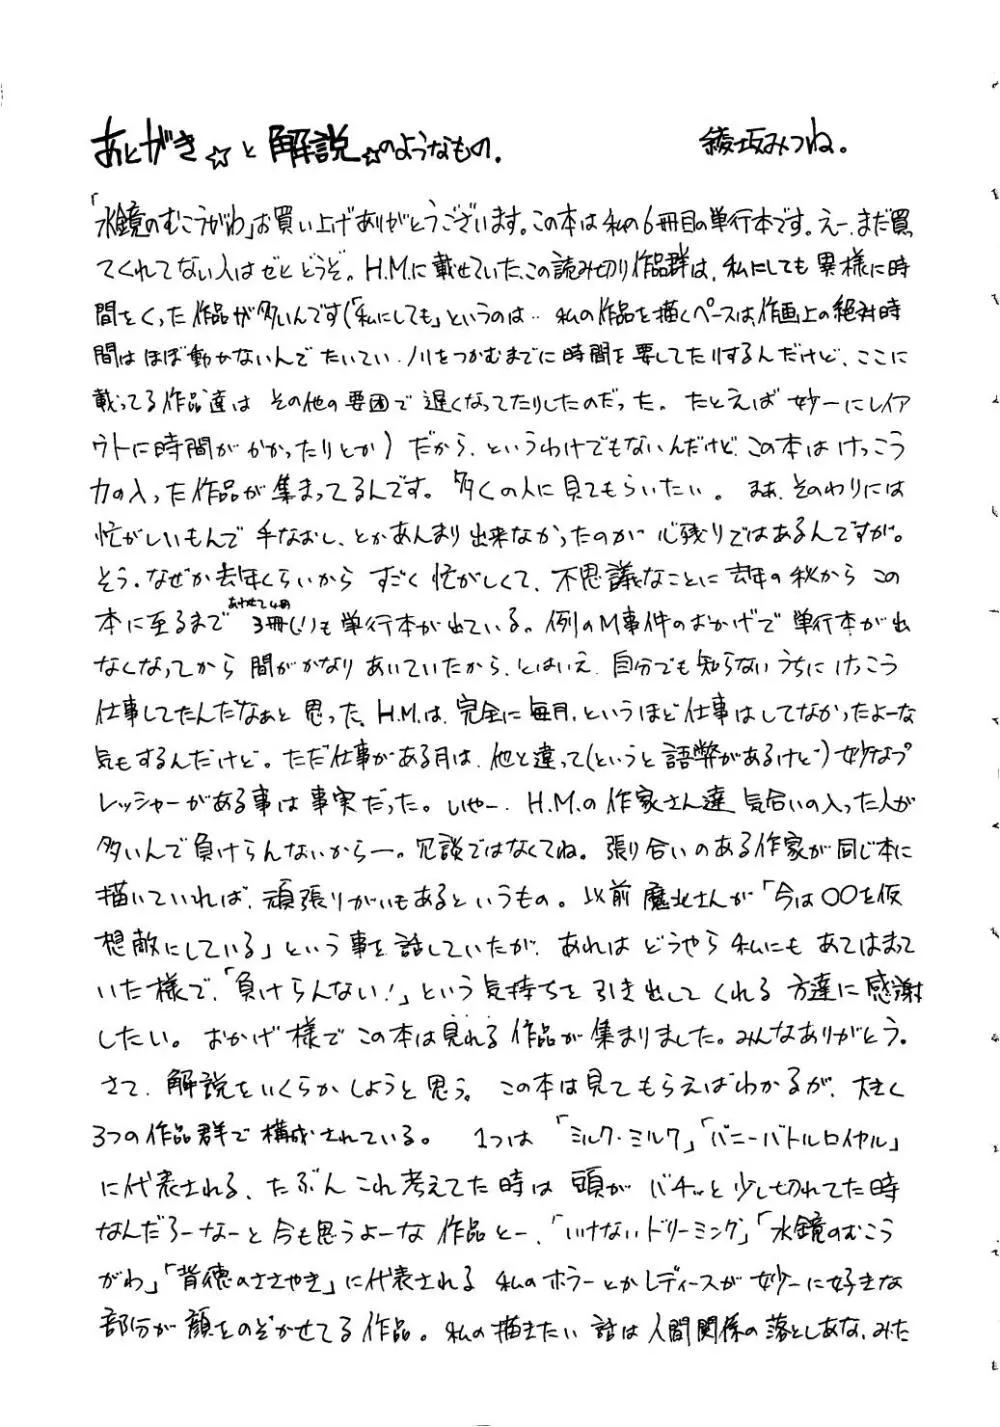 あとがき☆と解説☆のようなもの。 綾坂みつね。
「水鏡のむこうがわ」お買い上げありがとうございます。この本は私の6冊目の単行本です。えー、まだ買っ
てくれてない人はぜひどうぞ。H.M.に載せていた、この読み切り作品群は、私にしても異様に時
間をくった作品が多いんです(「私にしても」というのは‥私の作品を描くペースは、作画上の絶対時
間はほぼ動かないんでたいてい、ノリをつかむまでに時間を要してたりするんだけど、ここに
載ってる作品達はその他の要因で遅くなってたりしたのだった。たとえば妙ーにレイア
ウトに時間がかかったりとか)だから、というわけでもないんだけど、この本はけっこう
力の入った作品が集まってるんです。多くの人に見てもらいたい。まあ、そのわりには
忙がしいもんで手なおし、とかあんまり出来なかったのが心残りではあるんですが。
そう。なぜか去年くらいからすごく忙がしくて、不思議なことに去年の秋からこの
本に至るまであわせて4冊3冊(!)も単行本が出ている。例のM事件のおかげで単行本が出
なくなってから間がかなりあいていたから、とはいえ、自分でも知らないうちにけっこう
仕事してたんだなぁと思った。H.M.は、完全に毎月、というほど仕事はしてなかったよーな
気もするんだけど。ただ仕事がある月は、他と違って(というと語弊があるけど)妙なプ
レッシャーがある事は事実だった。いやー、H.M.の作家さん達気合いの入った人が
多いんで負けらんないからー。冗談ではなくてね。張り合いのある作家が同じ本に
描いていれば、頑張りがいもあるというもの。以前魔北さんが「今は○○を仮
想敵にしている」という事を話していたが、あれはどうやら私にもあてはまって
いた様で、「負けらんない!」という気持ちを引き出してくれる方達に感謝
したい。おかげ様でこの本は見れる作品が集まりました。みんなありがとう。
さて、解説をいくらかしようと思う。この本は見てもらえばわかるが、大きく
3つの作品群で構成されている。1つは「ミルク・ミルク」「バニーバトルロイヤル」
に代表される、たぶんこれ考えてた時は頭がバチッと少し切れてた時
なんだろーなーと今も思うよーな作品とー、「いけないドリーミング」「水鏡のむこう
がわ」「背徳のささやき」に代表される私のホラーとかレディースが妙ーに好きな
部分が顔をのぞかせてる作品。私の描きたい話は人間関係の落としあな、みた